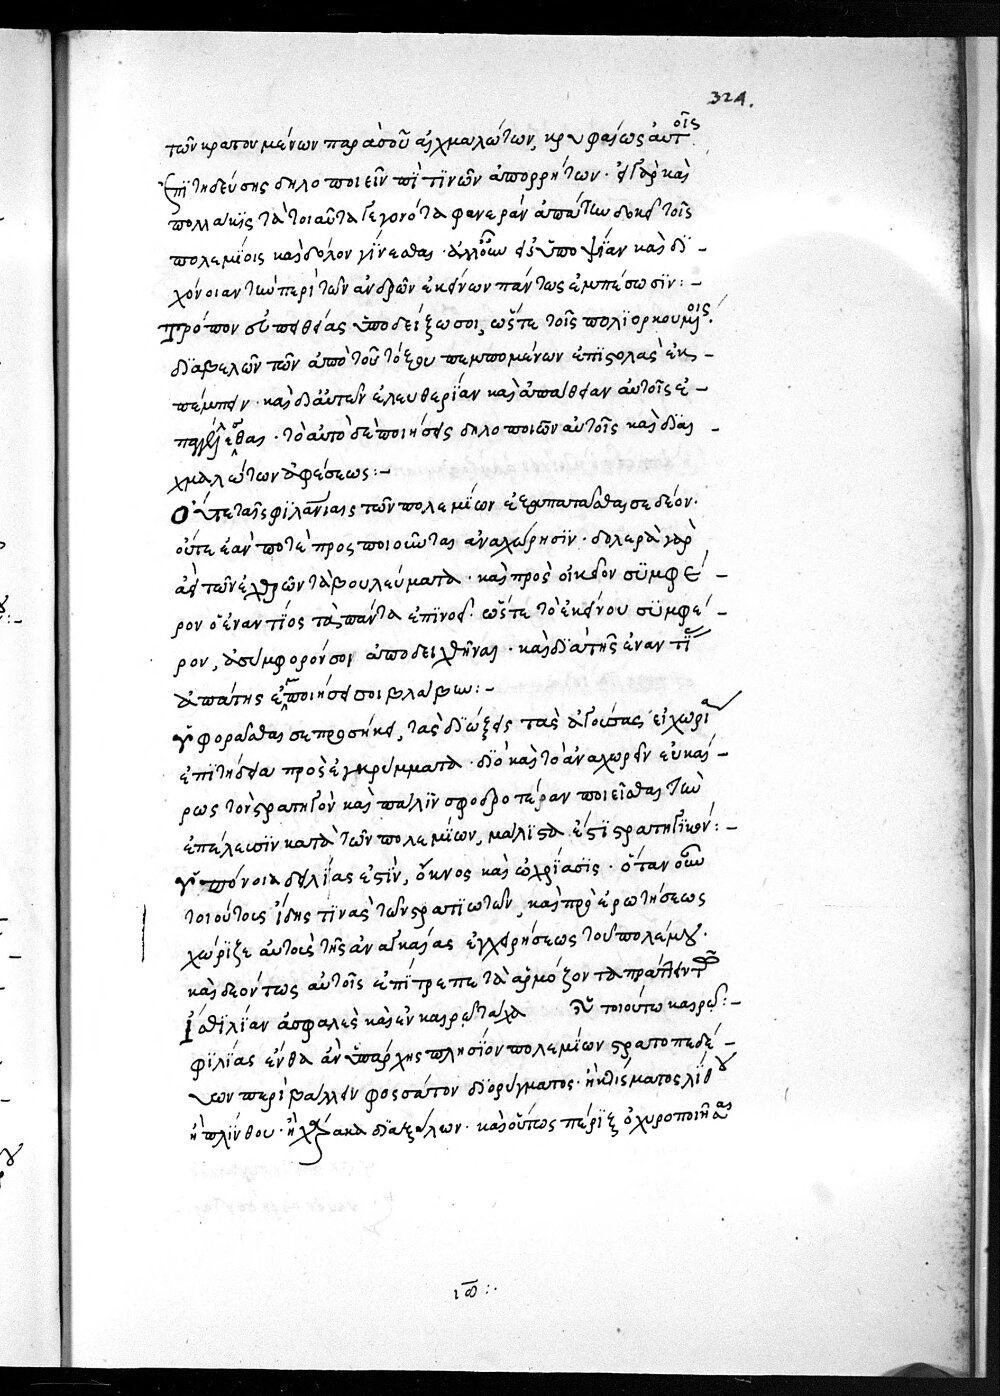 324.
τῶν κρατουμένων παρὰ σοῦ αἰχμαλώτων, κρυφαίως αὐτοῖς
ἐπιτηδεύσης δηλοποιεῖν περὶ τινῶν ἀπορρήτων· εἰ γὰρ καὶ
πολλάκις τὰ τοιαῦτα γεγονότα φανερὰν ἀπάτην δοκεῖ τοῖς
πολεμίοις καὶ δόλον γίνεσθαι· ἀλλ' οὖν εἰς ὑποψίαν καὶ δι-
χόνοιαν τὴν περὶ τῶν ἀνδρῶν ἐκείνων πάντως ἐμπέσωσιν:-
Τρόπον συμπαθείας ὑποδείξω σοι, ὥστε τοῖς πολιορκουμένοις
διὰ βελῶν τῶν ἀπὸ τοῦ τόξου πεμπομένων ἐπιστολὰς ἐκ-
πέμπειν· καὶ δι' αὐτῶν ἐλευθερίαν καὶ ἀπάθειαν αὐτοῖς ἐ-
παγγέλλεσθαι· τὸ αὐτὸ δὲ ποιήσεις δηλοποιῶν αὐτοῖς καὶ δι' αἰ-
χμαλώτων ἀφέσεως:-
Οὔτε ταῖς φιλανίαις τῶν πολεμίων ἐξαπατᾶσθαι σε δέον·
οὔτε ἐάν ποτε προσποιοῦνται ἀναχώρησιν· δολερὰ γὰρ
ἀεὶ τῶν ἐχθρῶν τὰ βουλεύματα· καὶ πρὸς οἰκεῖον συμφέ-
ρον ὁ ἐναντίος τὰ πάντα ἐπινοεῖ· ὥστε τὸ ἐκείνου συμφέ-
ρον, ἀσύμφορόν σοι ἀποδειχθῆναι· καὶ διὰ τῆς ἐναντί
ἀπάτης ἐμποιήσει σοι βλάβην:-
ὑφορᾶσθαι σε προσήκει, τὰς διώξεις τὰς ἀγούσας εἰς χωρία
ἐπιτήδεια πρὸς ἐγκρύμματα· διὸ καὶ τὸ ἀναχωρεῖν εὐκαί-
ρως τὸν στρατηγὸν καὶ πάλιν σφοδροτέραν ποιεῖσθαι τὴν
ἐπέλευσιν κατὰ τῶν πολεμίων, μάλιστα ἐστὶ στρατηγικόν:-
ὑπόνοια δειλίας ἐστὶν, ὄκνος καὶ ὠχρίασις· ὅταν οὖν
τοιούτους ἴδης τινὰς τῶν στρατιωτῶν, καὶ πρὸ ἐρωτήσεως
χώριζε αὐτοὺς τῆς ἀναγκαίας ἐγχειρήσεως τοῦ πολέμου·
καὶ δεόντως αὐτοῖς ἐπίτρεπε τὰ ἁρμόζοντα πράττειν
τοιούτω καιρῶ:-
φιλίας ἔνθα ἂν ὑπάρχης πλησίον πολεμίων στρατοπεδε-
ύων περιβάλλειν φοσσάτον διορύγματος· ἢ κτίσματος λίθου
ἢ πλίνθου· ἢ χάρακα διὰ ξύλων· καὶ οὕτως πέριξ ὀχυροποιῆσαι